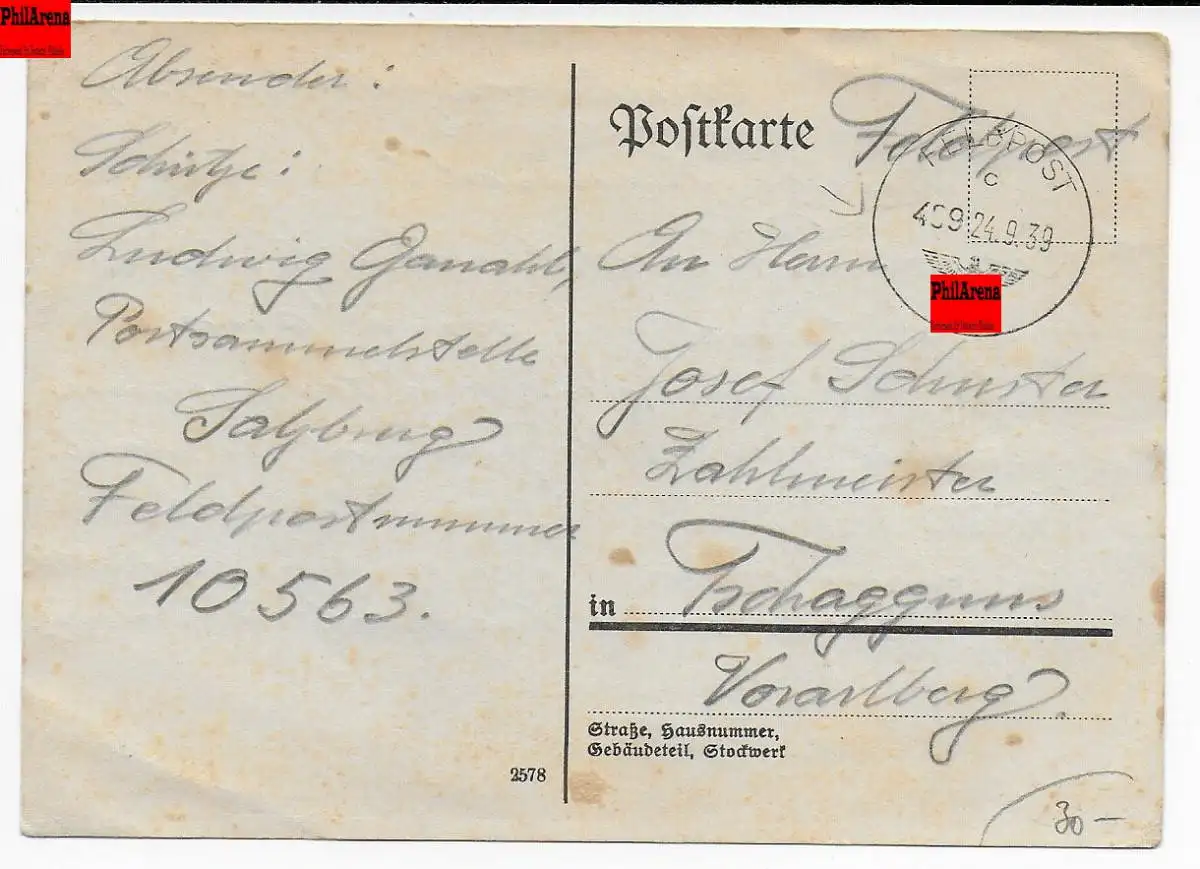 PhilArena
Absender:
Schütze:
Ludwig Ganahl,
Postsammelstelle
Salzburg
Feldpostnummer
10563.
2578
Postkarte
Feldpost
FELDPOST
c
409 24.9.39
PhilArena
An Herrn
Josef Schuster
Zahlmeister
in Tschagguns
Vorarlberg.
Straße, Hausnummer,
Gebäudeteil, Stockwerk
30-